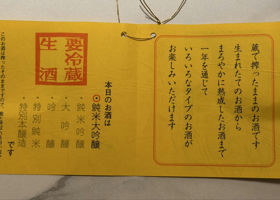 蔵で搾ったままのお酒です
生まれたてのお酒から
まろやかに熟成したお酒まで
一年を通じて
いろいろなタイプのお酒が
お楽しみいただけます
本日のお酒は
◎純米大吟醸
・純米吟醸
・大吟醸
・吟醸
・特別純米
・特別本醸造
です
要冷蔵
生酒